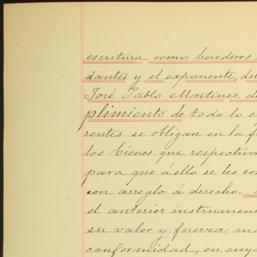 escritura como herederos,
dantes y el exponente, de
José Pablo Martinez d
plimiento de todo lo e
rentes se obligan en la f
los bienes que respectiva
para que á ello se les co
con arreglo á derecho.
el anterior instrumen
su valor y fuerza, m
conformidad, en cuy